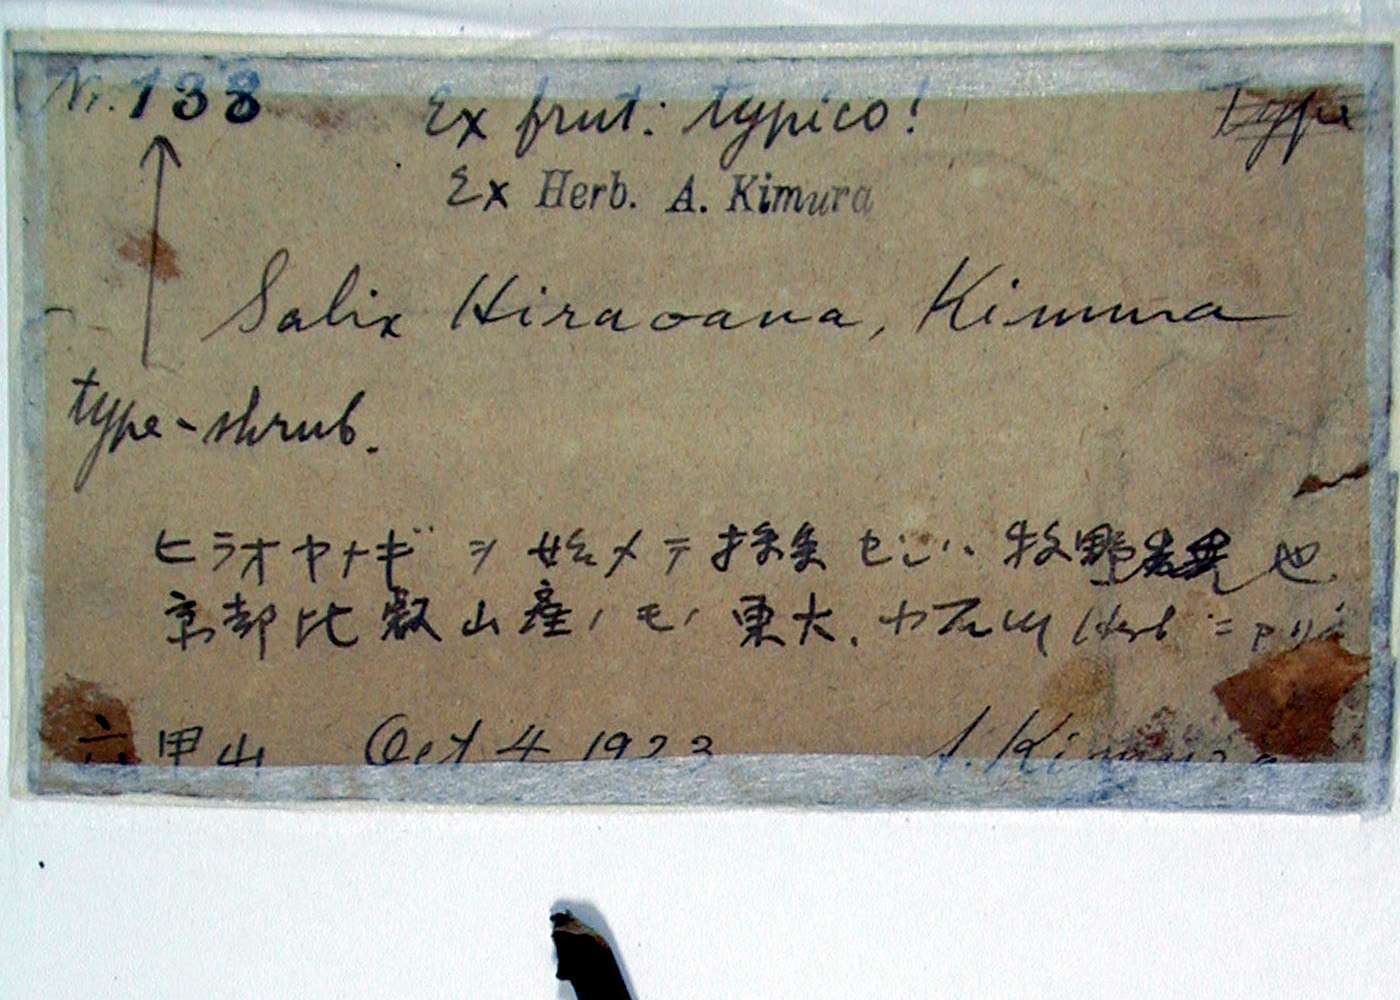 Nr. 138
Ex frut. typico!
type
Ex Herb. A. Kimura
Salix Hiraoana, Kimura
type-shrub.
ヒラオヤナギ ヲ 始メテ 採集 セシハ 牧野 也
京都比叡山産ノモノ 東大、 Herb ニ
六甲山 Oct 4 1923 A. Kimura